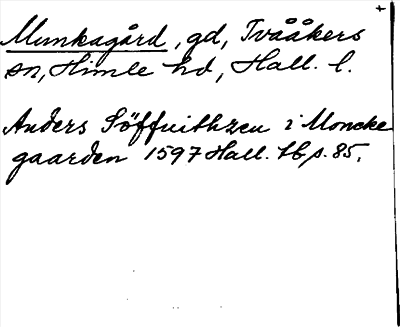 +
Munkagård, gd, Tvååkers
sn, Himle hd, Hall. l.
Anders Söffrilhzen i Moncke
gaarden 1597 Hall. tb, s. 85.